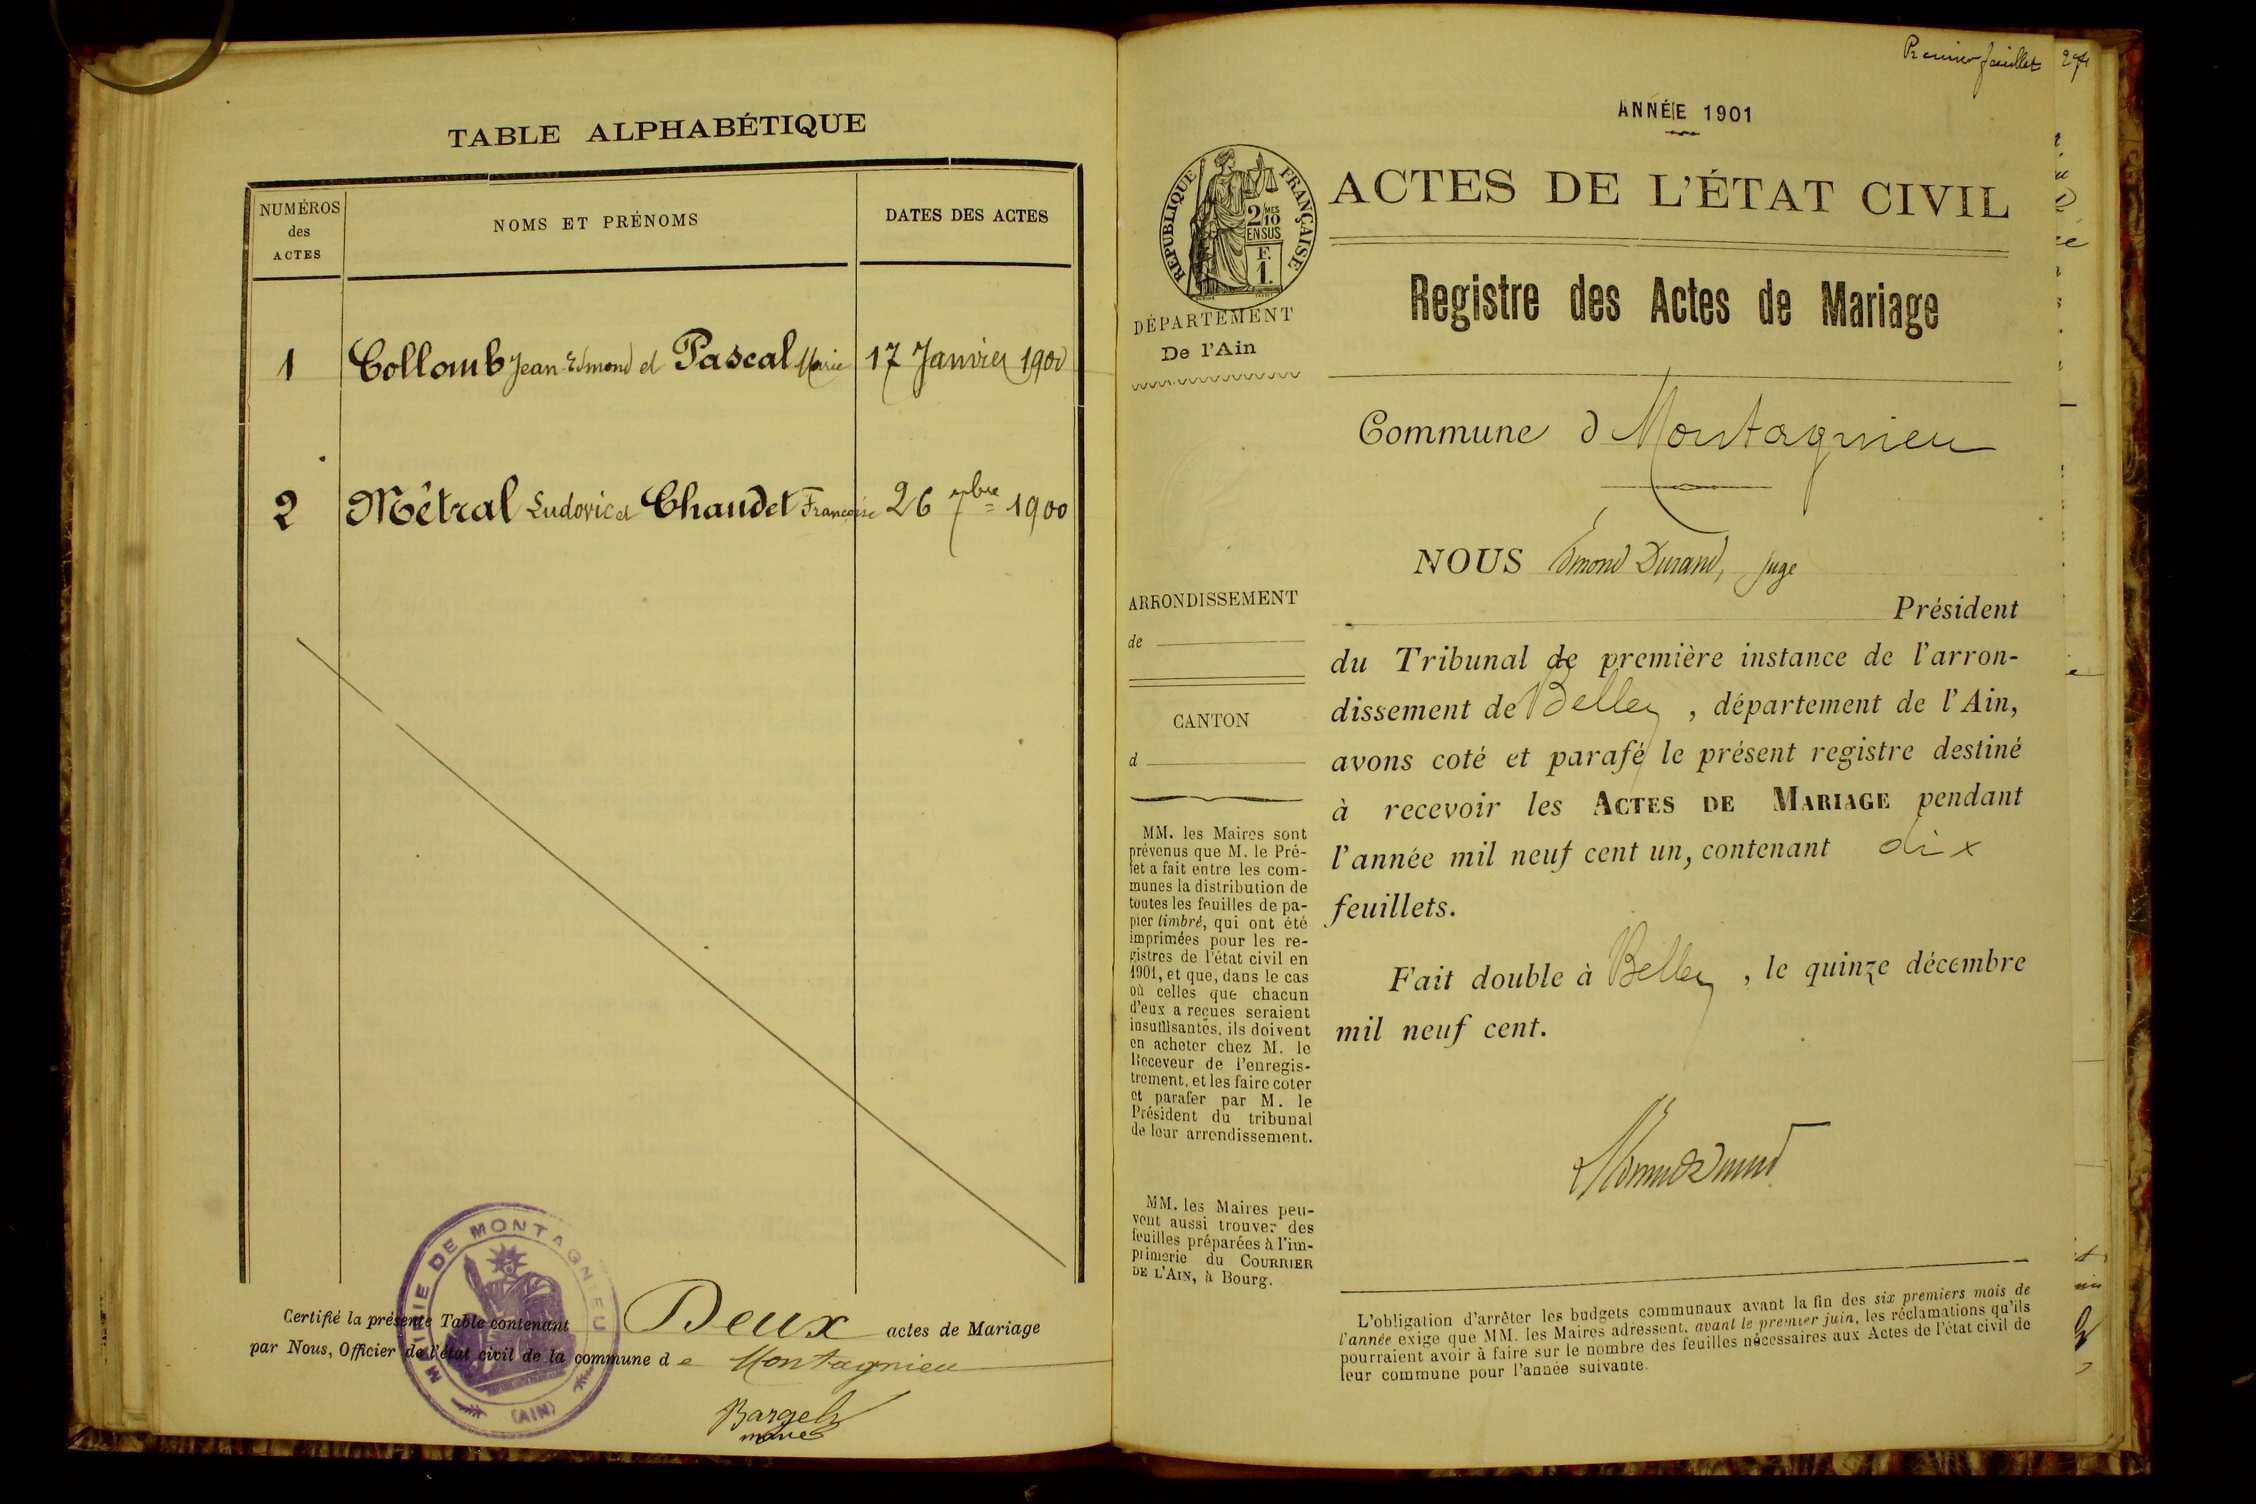 TABLE ALPHABÉTIQUE
NUMÉROS
des
ACTES
NOMS ET PRÉNOMS
DATES DES ACTES
1 Collomb Jean Edmond et Pascal Marie 17 Janvier 1900
2 Métral Ludovic et Chaudet Françoise 26 7bre 1900
Certifié la présente Table contenant Deux actes de Mariage
par Nous, Officier de l'état civil de la commune de Montagnieu
MAIRIE DE MONTAGNIEU
(AIN)
Premier feuillet
ANNÉE 1901
RÉPUBLIQUE FRANÇAISE
2/10 MES
EN SUS
F.
1.
ACTES DE L'ÉTAT CIVIL
DÉPARTEMENT
De l'Ain
Registre des Actes de Mariage
Commune d Montagnieu
NOUS Edmond Durand, juge
Président
du Tribunal de première instance de l'arron-
dissement de Belley, département de l'Ain,
avons coté et parafé le présent registre destiné
à recevoir les ACTES DE MARIAGE pendant
l'année mil neuf cent un, contenant dix
feuillets.
Fait double à Belley, le quinze décembre
mil neuf cent.
ARRONDISSEMENT
de
CANTON
d
MM. les Maires sont
prévenus que M. le Pré-
fet a fait entre les com-
munes la distribution de
toutes les feuilles de pa-
pier timbré, qui ont été
imprimées pour les re-
gistres de l'état civil en
1901, et que, dans le cas
où celles que chacun
d'eux a reçues seraient
insuffisantes, ils doivent
en acheter chez M. le
Receveur de l'enregis-
trement, et les faire coter
et parafer par M. le
Président du tribunal
de leur arrondissement.
MM. les Maires peu-
vent aussi trouver des
feuilles préparées à l'im-
primerie du COURRIER
DE L'AIN, à Bourg.
L'obligation d'arrêter les budgets communaux avant la fin des six premiers mois de
l'année exige que MM. les Maires adressent, avant le premier juin, les réclamations qu'ils
pourraient avoir à faire sur le nombre des feuilles nécessaires aux Actes de l'état civil de
leur commune pour l'année suivante.